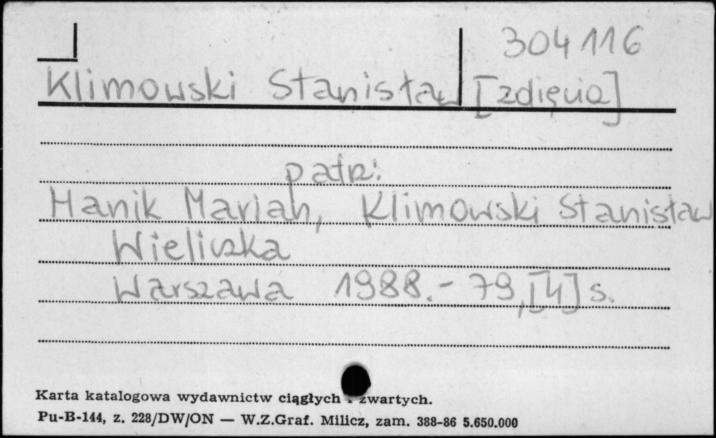 304116
Klimowski Stanisław [zdjęcia]
patrz:
Hanik Marian, Klimowski Stanisław
Wieliczka
Warszawa 1988.- 79,[4] s.
Karta katalogowa wydawnictw ciągłych i zwartych.
Pu-B-144, z. 228/DW/ON — W.Z.Graf. Milicz, zam. 388-86 5.650.000